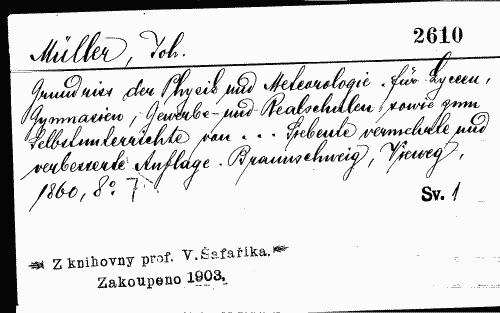 2610
Müller, Joh.
Grundriss der Physik und Meteorologie. für Lyceen,
Gymnasien, Gewerbe- und Realschulen, sowie zum
Selbstunterrichte von ... Siebente vermehrte und
verbesserte Auflage. Braunschweig, Vieweg,
1860, 8°.
Sv. 1
Z knihovny prof. V. Šafaříka.
Zakoupeno 1903.